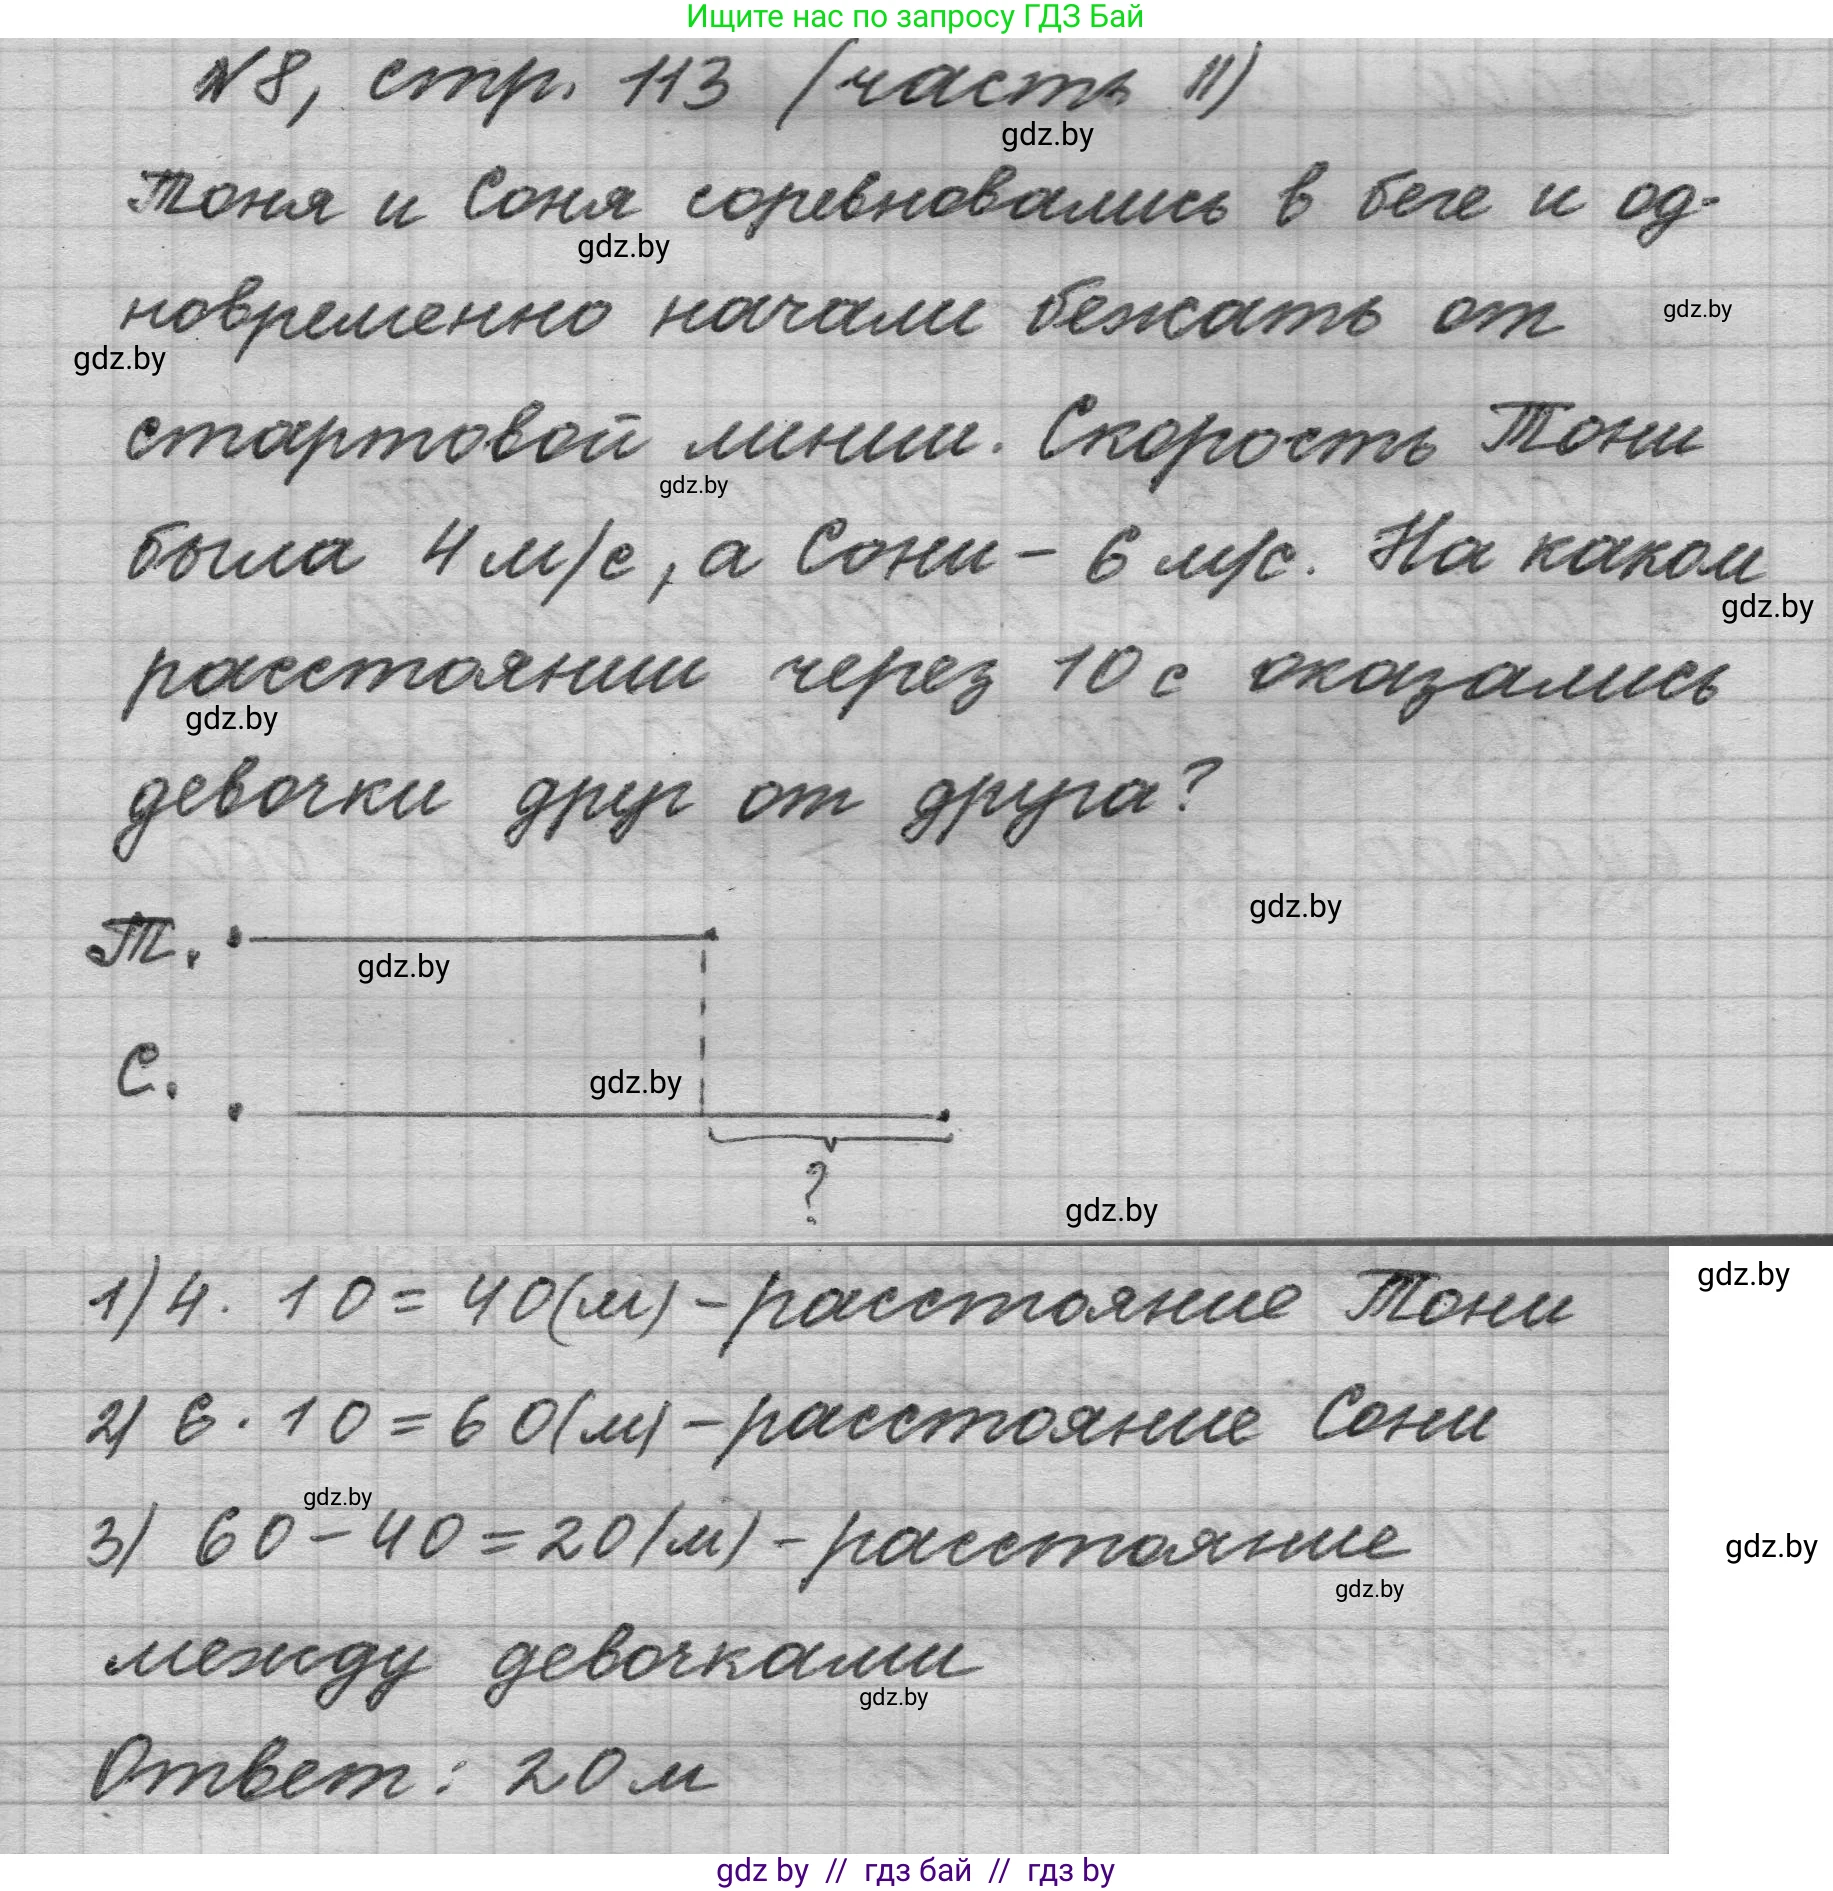 Ищите нас по запросу ГДЗ Бай
№8, стр. 113 (часть II)
gdz.by
Тоня и Соня соревновались в беге и од-
gdz.by
новременно начали бежать от
gdz.by
gdz.by
стартовой линии. Скорость Тони
gdz.by
была 4 м/с, а Сони – 6 м/с. На каком
gdz.by
расстоянии через 10 с оказались
gdz.by
девочки друг от друга?
gdz.by
Т.
gdz.by
С.
gdz.by
?
gdz.by
1) 4 · 10 = 40 (м) – расстояние Тони
gdz.by
2) 6 · 10 = 60 (м) – расстояние Сони
gdz.by
3) 60 – 40 = 20 (м) – расстояние
gdz.by
gdz.by
между девочками
gdz.by
Ответ: 20 м
gdz by // гдз бай // гдз by